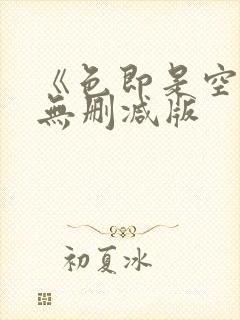 《色即是空
無删减版
初夏冰